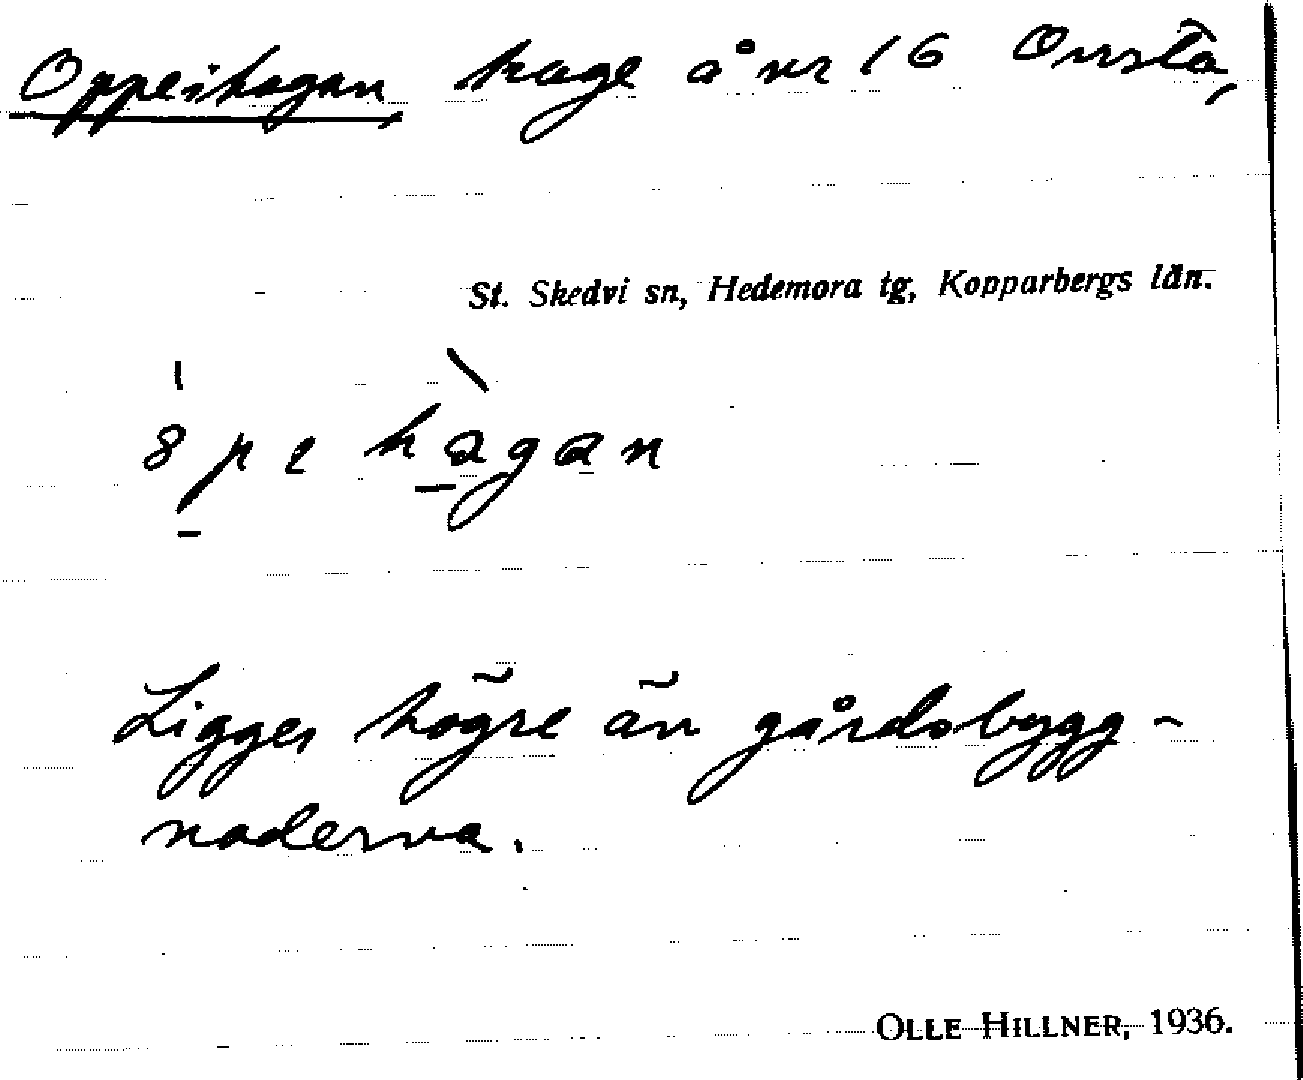 Oppeihagan, hage å nr 16 Onsta,
St. Skedvi sn, Hedemora tg, Kopparbergs län.
8pe hagan
Ligger högre än gårdsbygg-
naderna.
OLLE HILLNER, 1936.